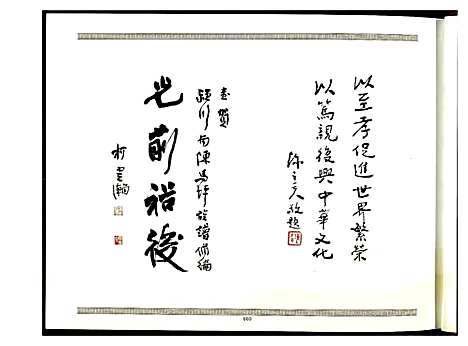 以至孝促進世界繁榮
以篤親復興中華文化
陳立夫敬題
恭賀
潁川南陳馬坪族譜修編
光前裕後